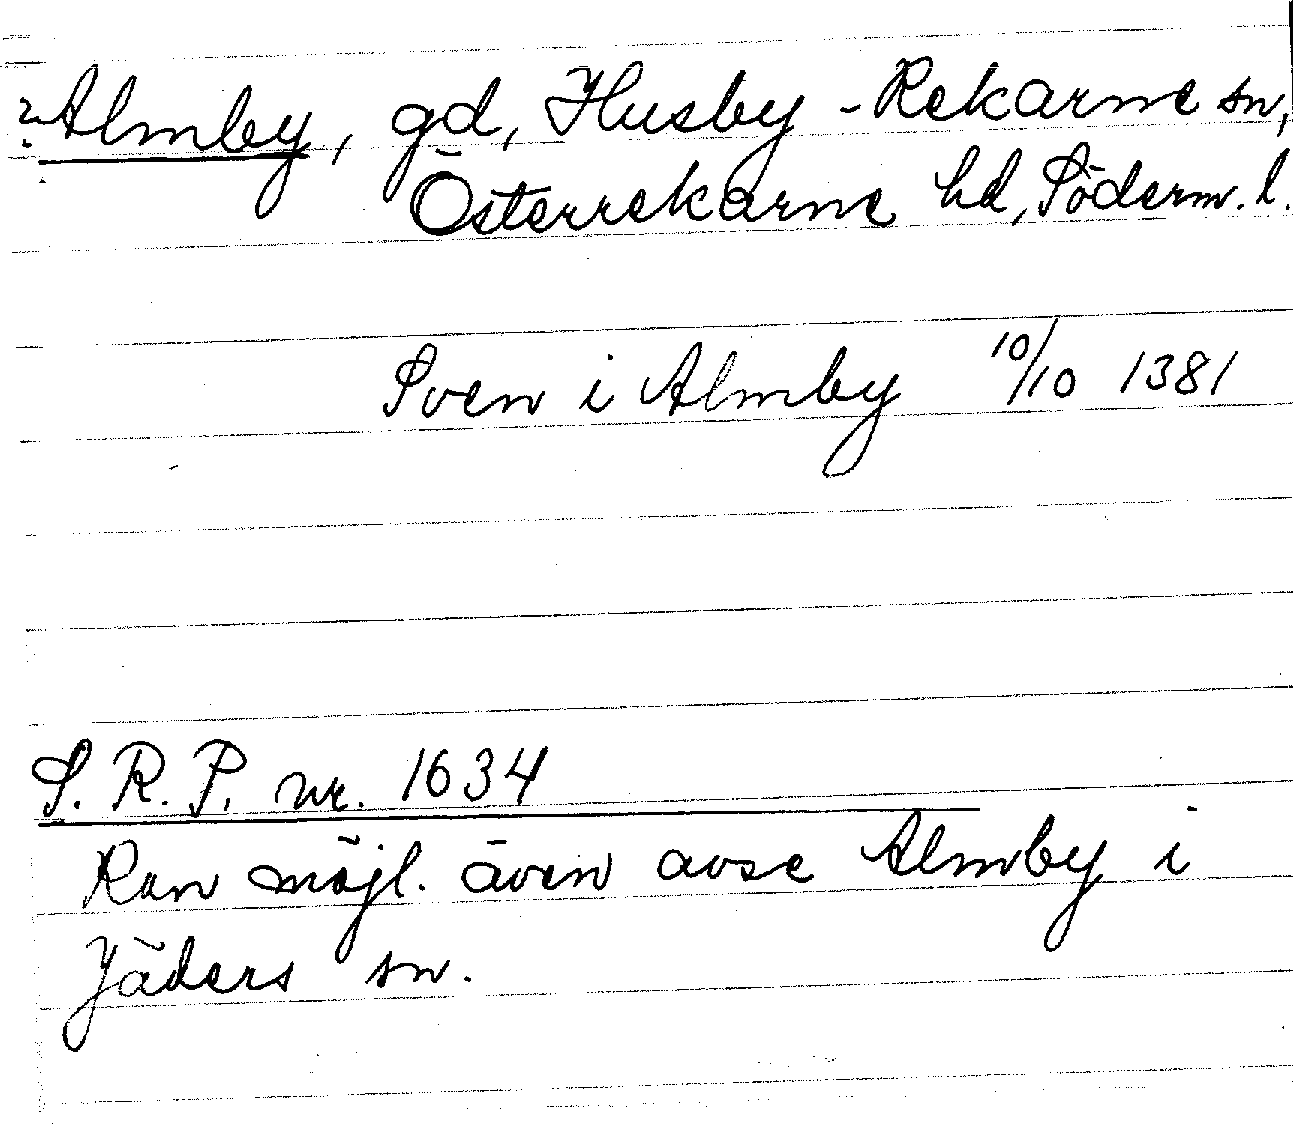 ? Almby, gd, Husby-Rekarne sn,
Österrekarne hd, Söderm. l.
Sven i Almby 10/10 1381
S. R. P. nr. 1634
Kan möjl. även avse Almby i
Jäders sn.